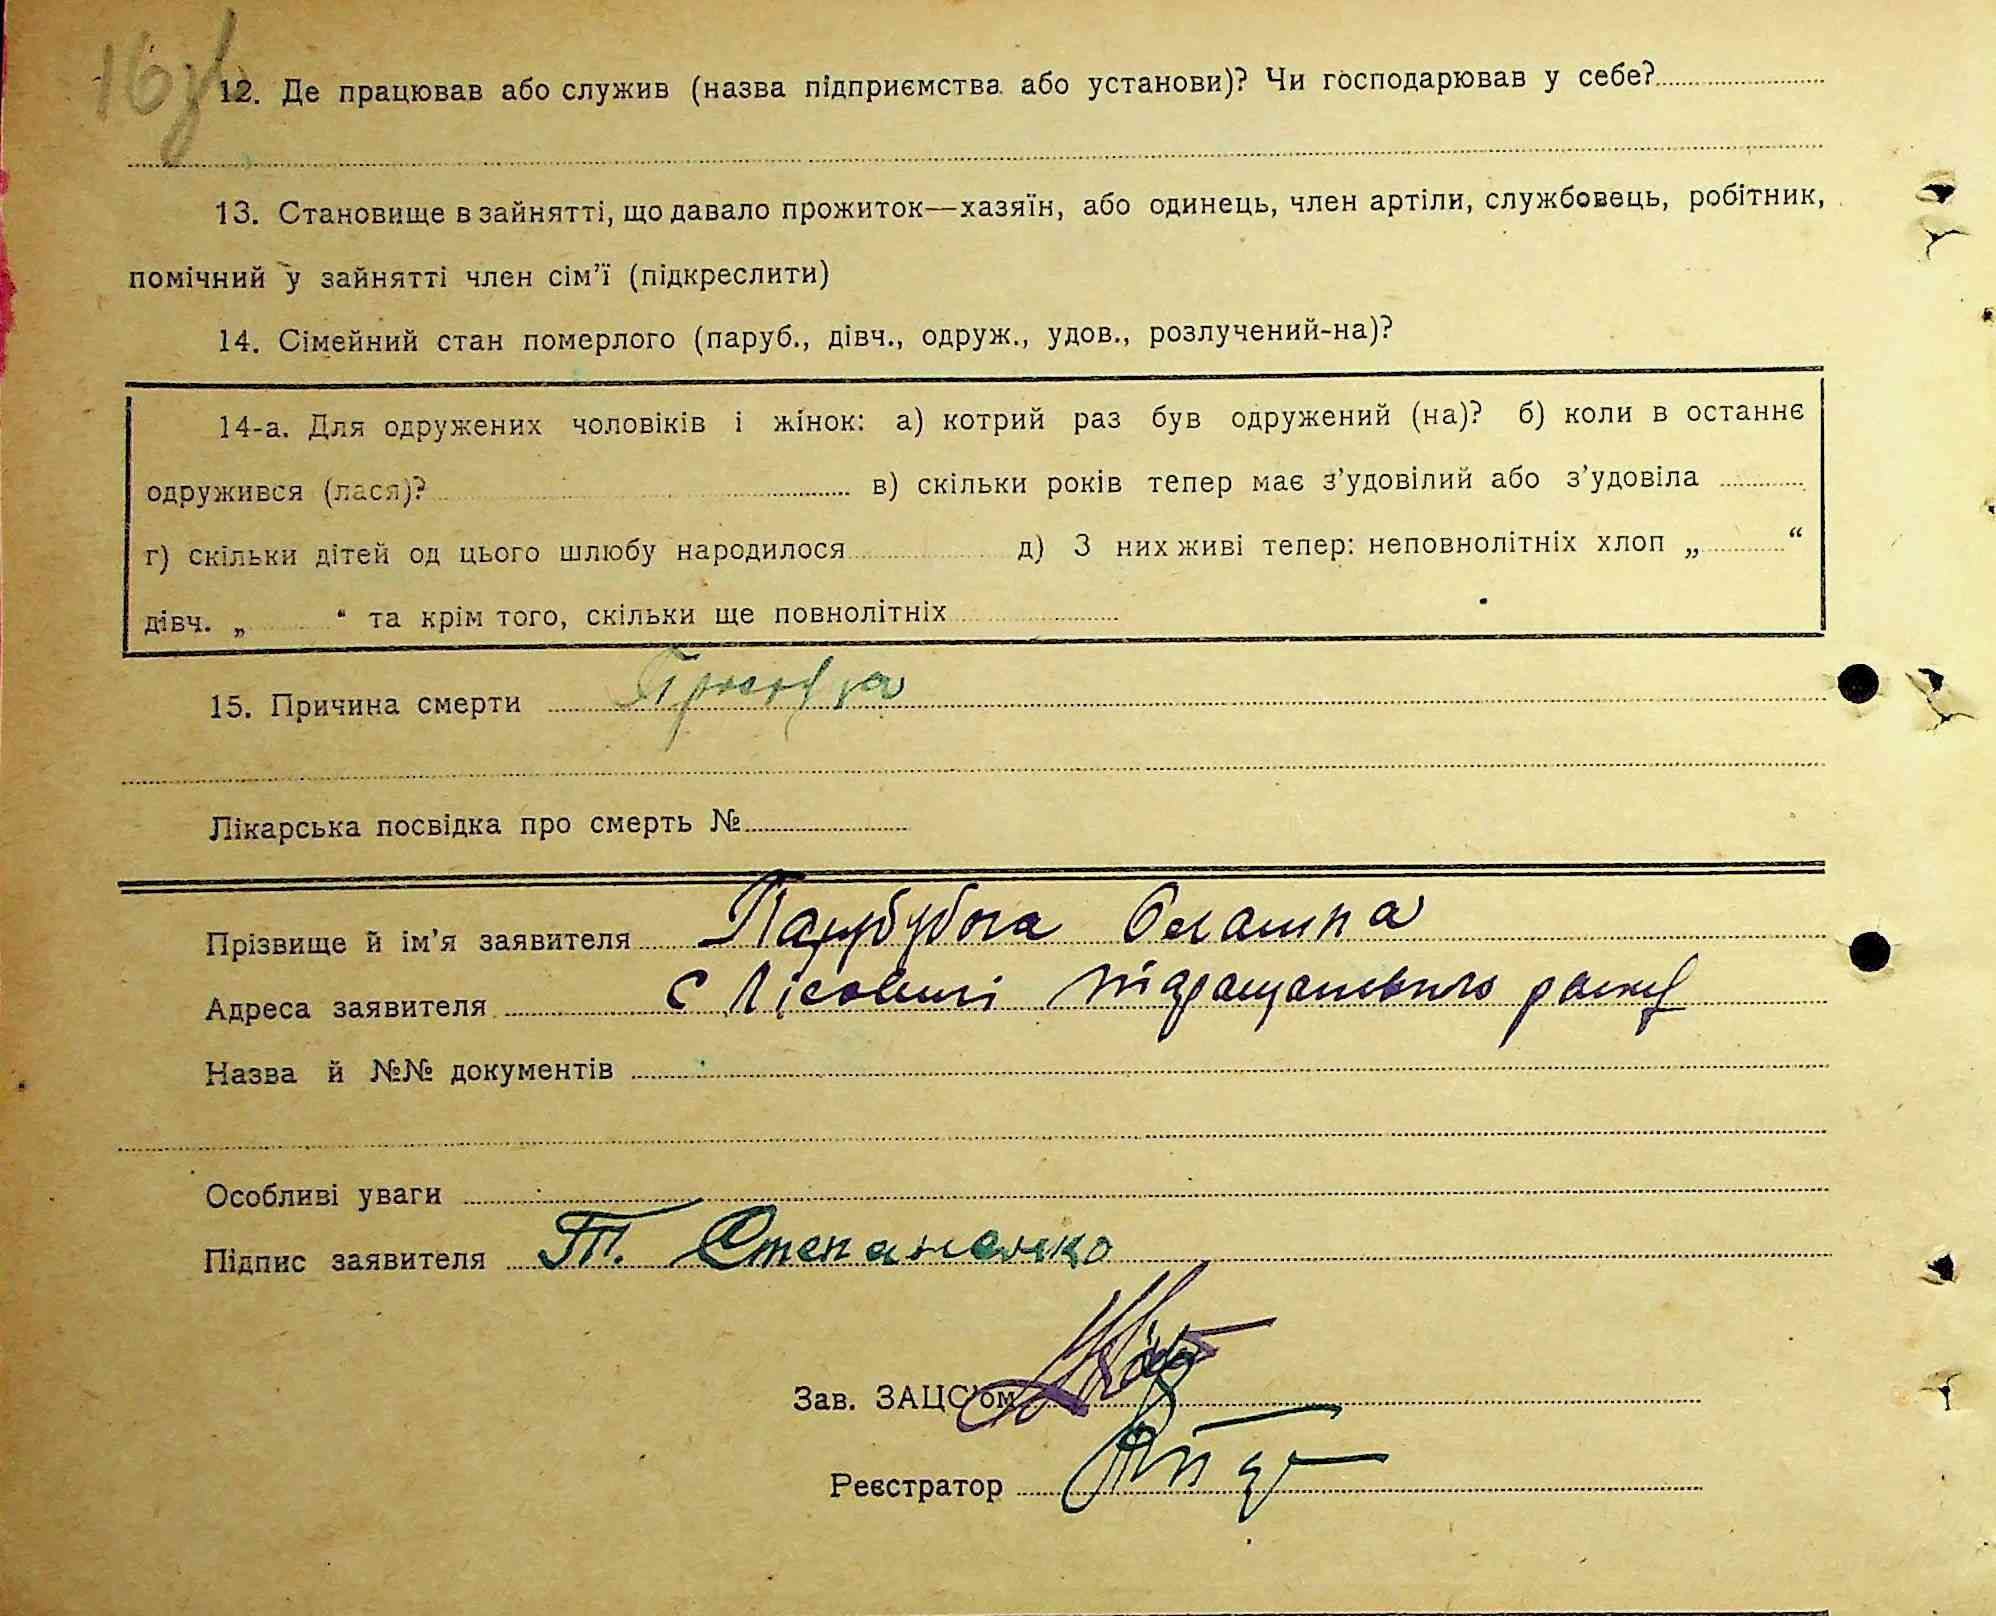 16
12. Де працював або служив (назва підприємства або установи)? Чи господарював у себе?
13. Становище в зайнятті, що давало прожиток—хазяїн, або одинець, член артіли, службовець, робітник,
помічний у зайнятті член сім’ї (підкреслити)
14. Сімейний стан померлого (паруб., дівч., одруж., удов., розлучений-на)?
14-а. Для одружених чоловіків і жінок: а) котрий раз був одружений (на)? б) коли в останнє
одружився (лася)? в) скільки років тепер має з’удовілий або з’удовіла
г) скільки дітей од цього шлюбу народилося д) З них живі тепер: неповнолітніх хлоп „ “
дівч. „ “ та крім того, скільки ще повнолітніх
15. Причина смерти
Лікарська посвідка про смерть №
Прізвище й ім’я заявителя
Адреса заявителя с
Назва й №№ документів
Особливі уваги
Підпис заявителя Т. Степаненко
Зав. ЗАЦС’ом
Реєстратор